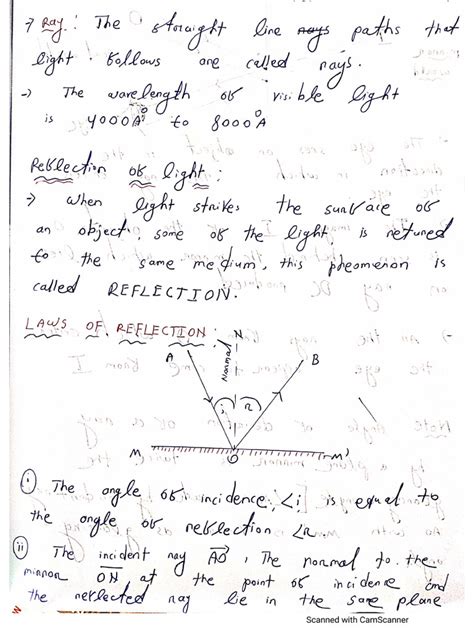 → Ray : The straight line rays paths that
light follows are called rays.
→ The wavelength of visible light
is 4000A° to 8000A°
Reflection of light :
→ When light strikes the surface of
an object some of the light is retuned
to the same medium, this pheomenon is
called REFLECTION.
LAWS OF REFLECTION :
N
Normal
A
B
i
r
M
O
M'
(i) The angle of incidence, ∠i is equal to
the angle of reflection ∠R
(ii) The incident ray AO, The normal to the
mirror ON at the point of incidence and
the reflected ray lie in the same plane
Scanned with CamScanner